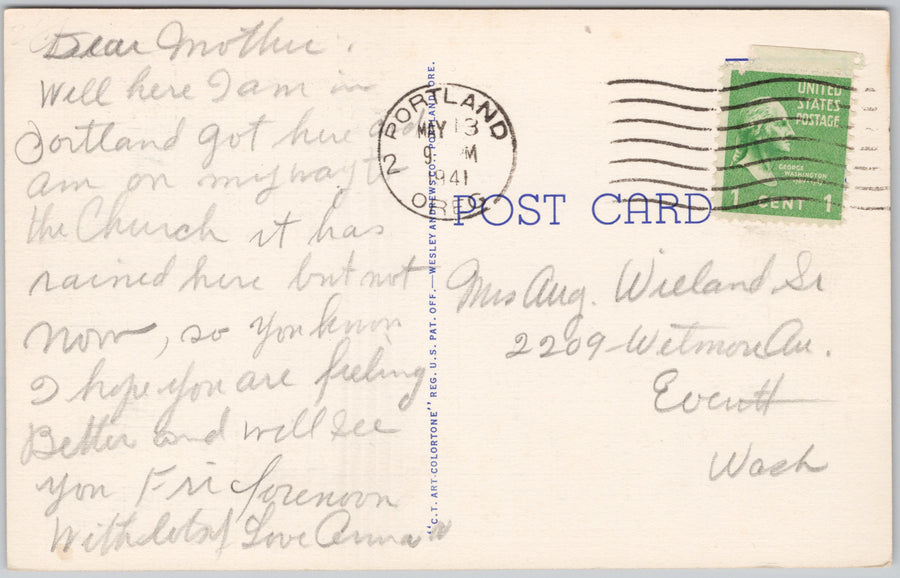 Dear Mother.
Well here I am in
Portland got here and
am on my way to
the Church it has
rained here but not
now, so you know
I hope you are feeling
Better and will see
you Fri forenoon
With lots of Love Anna
"C.T. ART-COLORTONE" REG. U.S. PAT. OFF.—WESLEY ANDREWS CO., PORTLAND, ORE.
PORTLAND
MAY 13
9 M
1941
2
OREG.
UNITED
STATES
POSTAGE
GEORGE
WASHINGTON
1 CENT 1
POST CARD
Mrs Aug. Wieland Sr
2209 Wetmore Av.
Everett
Wash